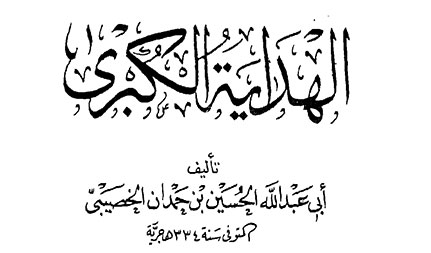 الهداية الكبرى
تأليف
أبي عبد الله الحسين بن حمدان الخصيبي
المتوفى سنة ٣٣٤ هجرية